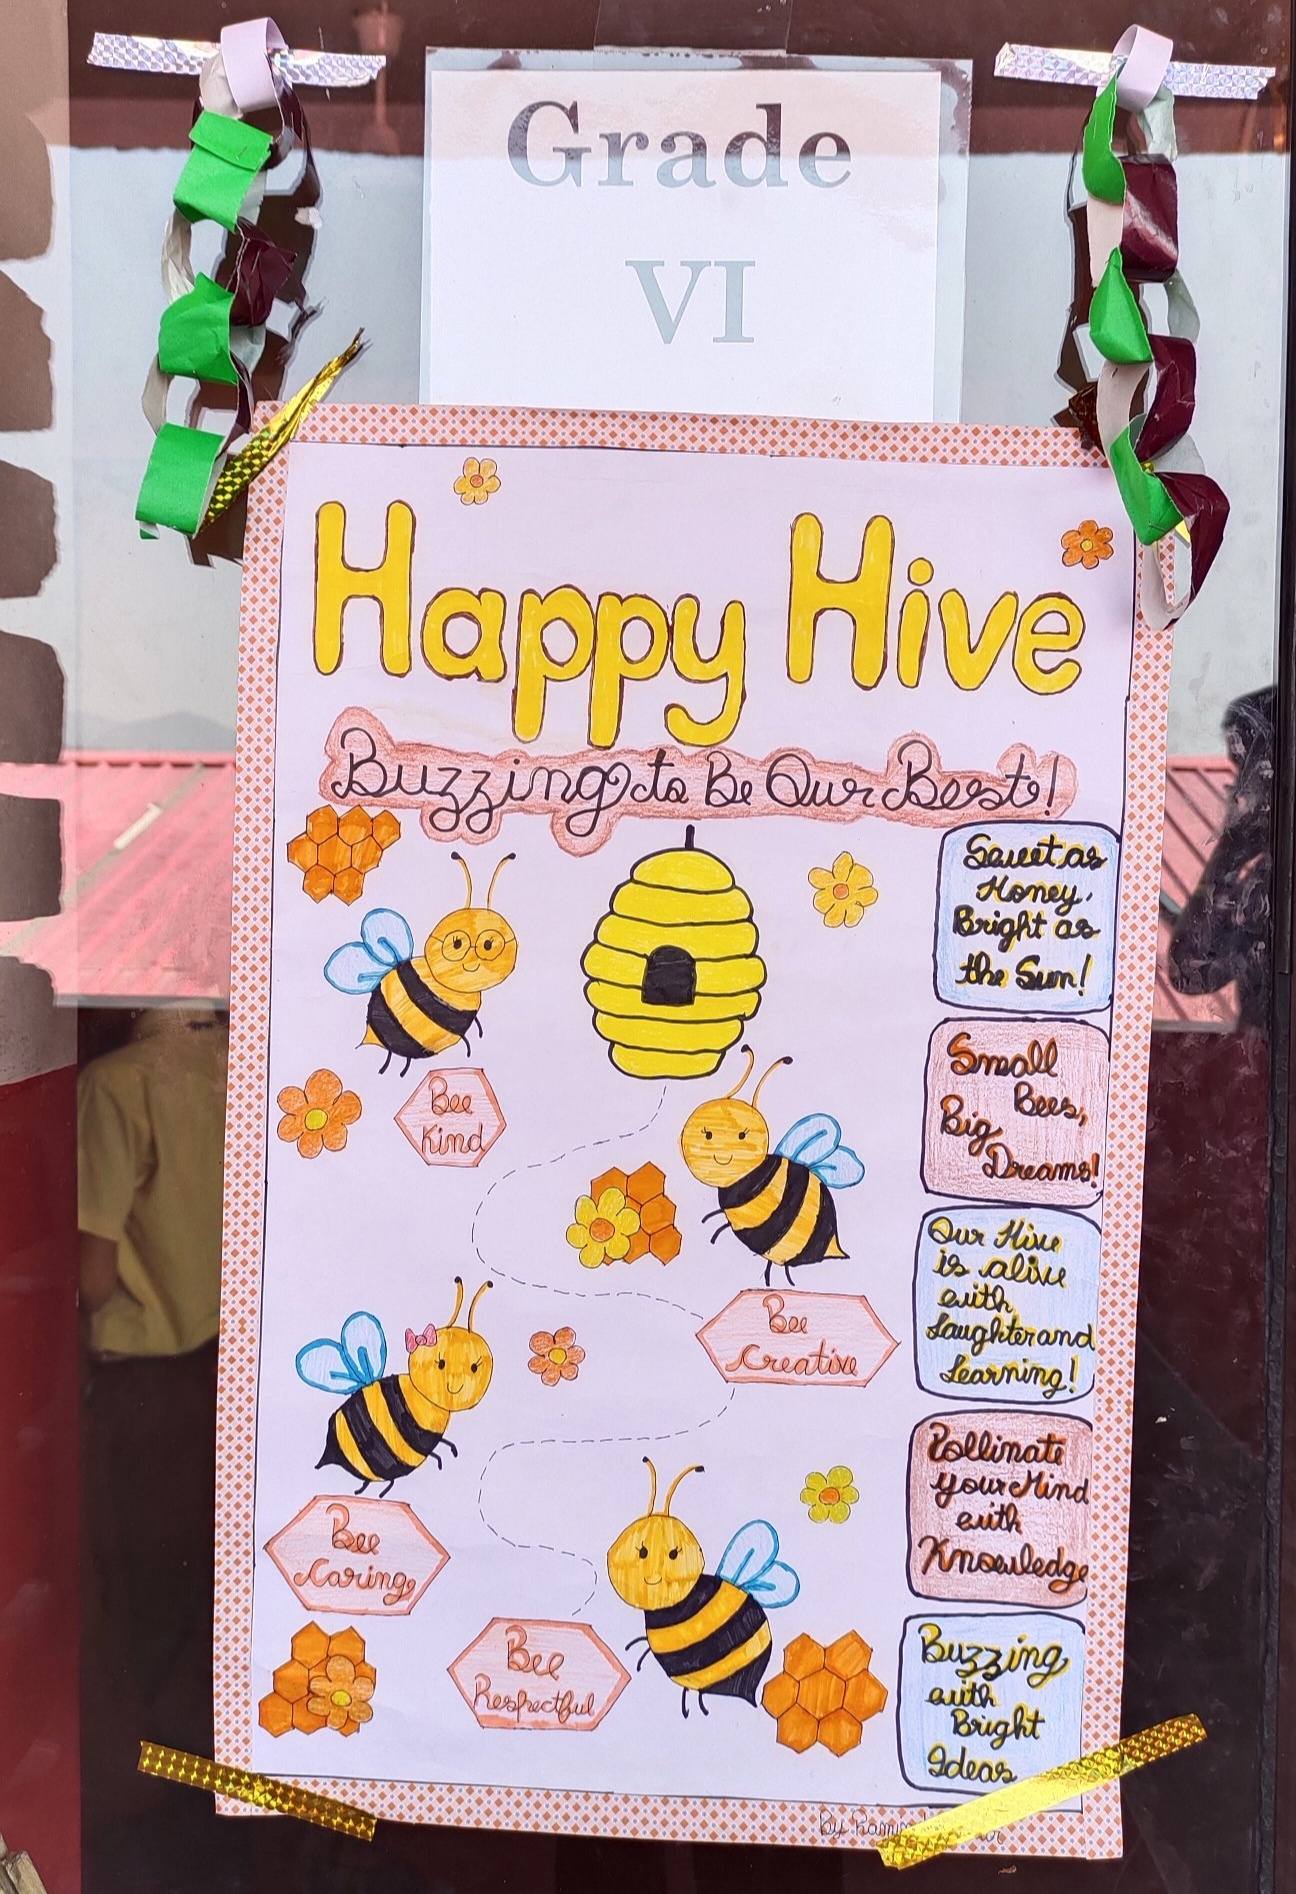 Grade
VI
Happy Hive
Buzzing to Be Our Best!
Sweet as
Honey,
Bright as
the Sun!
Bee
Kind
Small
Bees,
Big
Dreams!
Our Hive
is alive
with
Laughter and
Learning!
Bee
Creative
Pollinate
your Mind
with
Knowledge
Bee
Caring
Bee
Respectful
Buzzing
with
Bright
Ideas
By